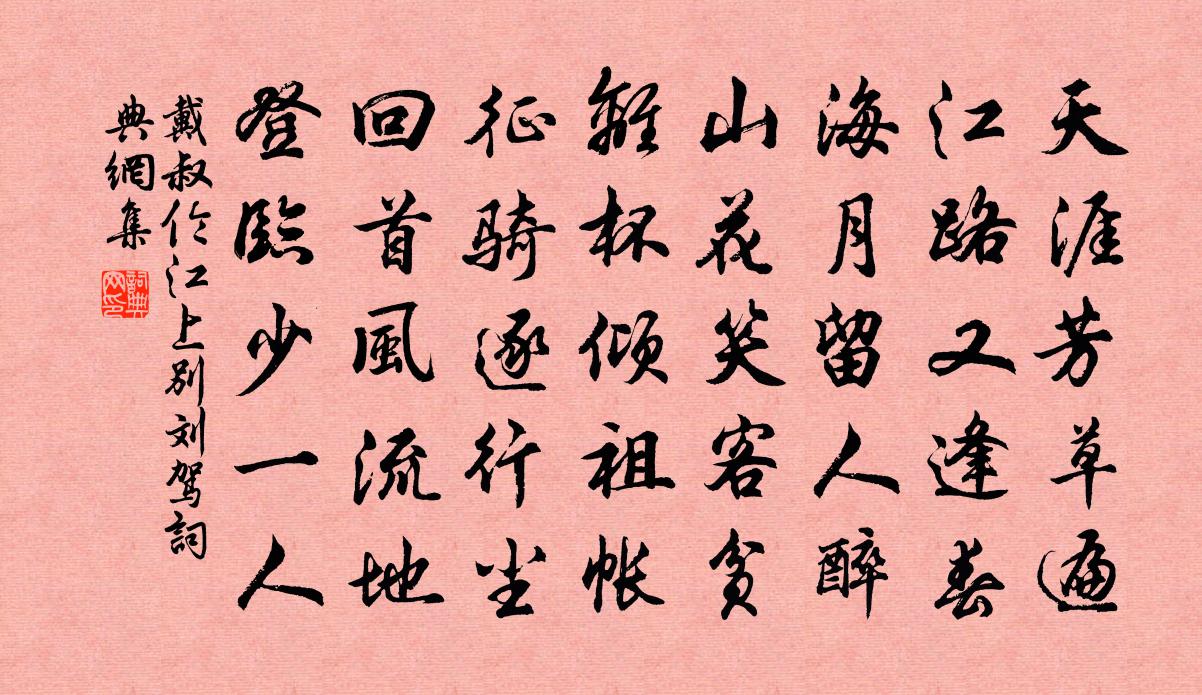 天涯芳草遍
江路又逢春
海月留人醉
山花笑客贫
離杯倾祖帳
征骑逐行尘
回首風流地
登臨少一人
戴叔伦江上别刘驾詞
典網集
詞典
网印